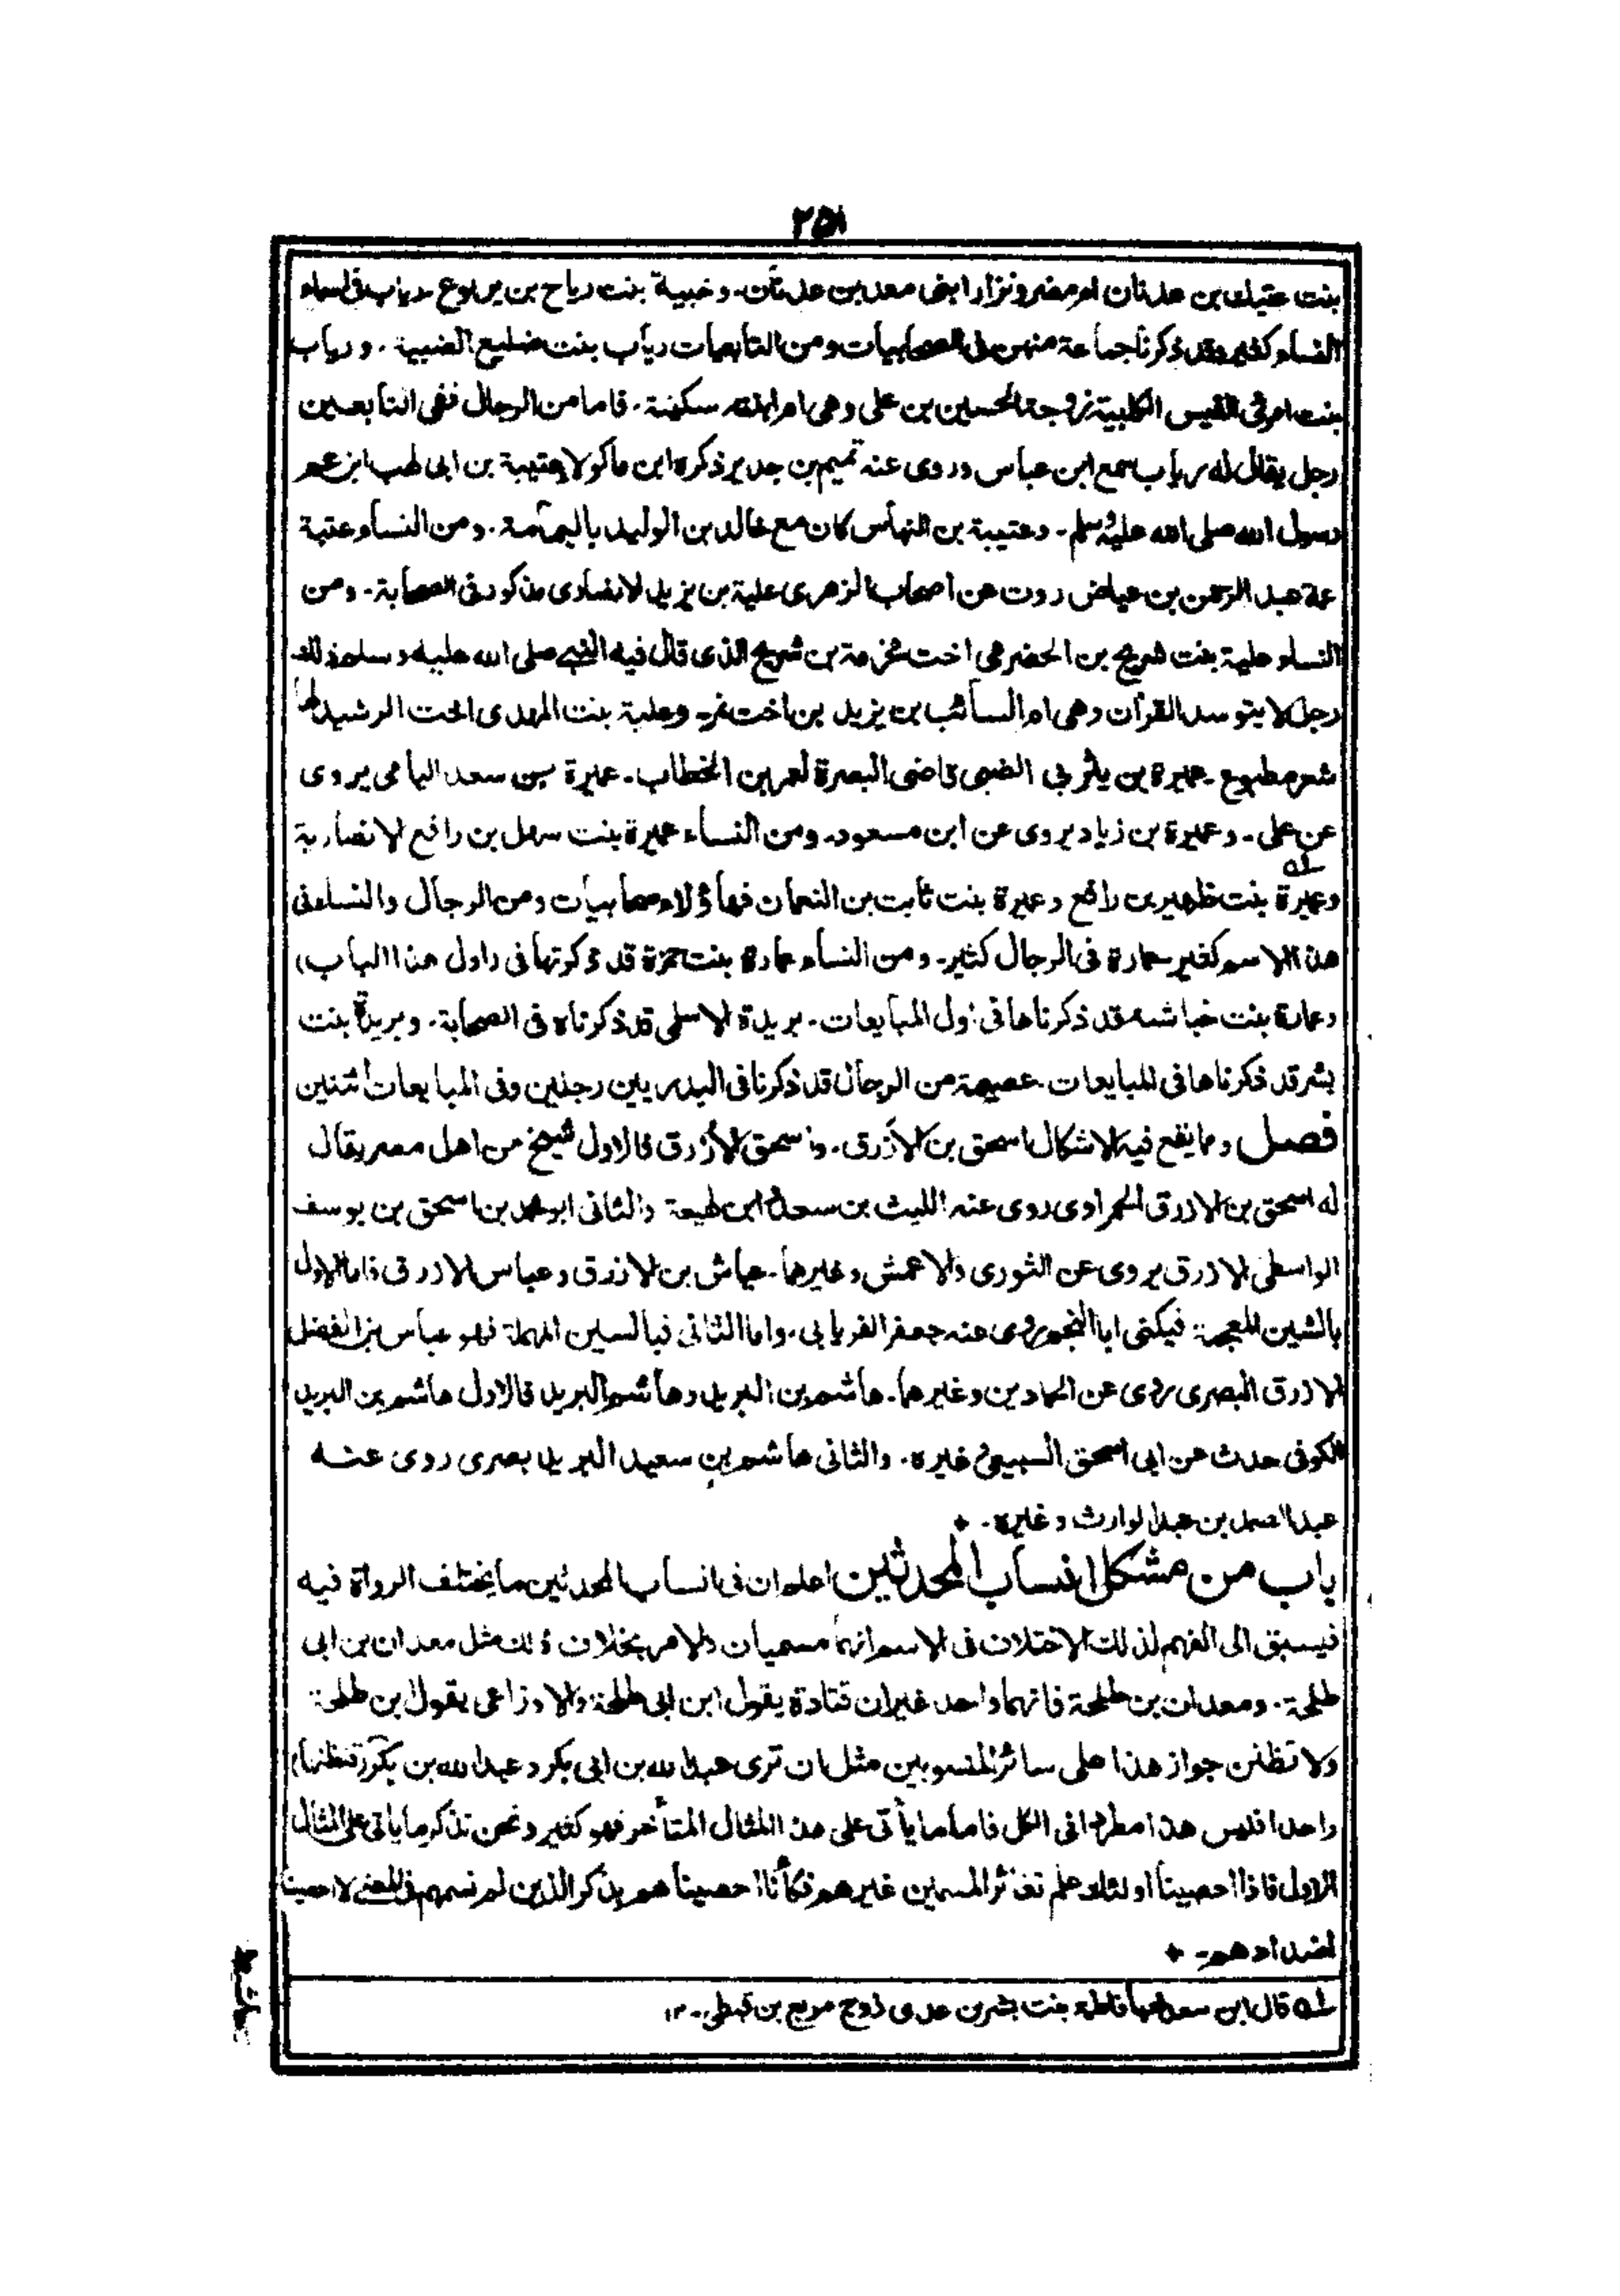 ٢٥١
بنت عتيك بن عدنان ام مضر ونزار ابنى معد بن عدنان ـ وخبية بنت رياح بن يربوع ـ رباب فى اسماء
النساء كثير وقد ذكرنا جماعة منهن فى الصحابيات ومن التابعيات رباب بنت ضليع الضبية ـ ورباب
بنت امرئ القيس الكلبية زوجة الحسين بن على وهى ام ابنته سكينة ـ فاما من الرجال ففى التابعين
رجل يقال له رباب سمع ابن عباس وروى عنه تميم بن جدير ذكره ابن ماكولا عتيبة بن ابى لهب ابن عم
رسول الله صلى الله عليه وسلم ـ وعتيبة بن النهاس كان مع خالد بن الوليد باليمامة ـ ومن النساء عتبة
عمة عبد الرحمن بن عياض روت عن اصحاب الزهرى علية بن يزيد الانصارى مذكور فى الصحابة ـ ومن
النساء علية بنت شريح بن الحضرمى اخت مخرمة بن شريح الذى قال فيه النبى صلى الله عليه وسلم ذلك
رجل لا يتوسد القرآن وهى ام السائب بن يزيد بن اخت نمر ـ وعلية بنت المهدى اخت الرشيد لها
شعر مطبوع ـ عميرة بن يثربى الضبى قاضى البصرة لعمر بن الخطاب ـ عميرة بن سعد اليامى يروى
عن على ـ وعميرة بن زياد يروى عن ابن مسعود ـ ومن النساء عميرة بنت سهل بن رافع الانصارية
وعميرة بنت ظهير بن رافع وعميرة بنت ثابت بن النعمان فهاؤلاء صحابيات ومن الرجال والنساء فى
هذا الاسم كثير ـ عمارة فى الرجال كثير ـ ومن النساء عمارة بنت حمزة قد ذكرتها فى (اول هذا الباب)
وعمارة بنت خباشه قد ذكرناها فى اول المبايعات ـ بريدة الاسلمى قد ذكرناه فى الصحابة ـ وبريدة بنت
بشر قد ذكرناها فى المبايعات ـ عصيمة من الرجال قد ذكرنا فى البدريين رجلين وفى المبايعات اثنين
فصل ومما يقع فيه الاشكال اسحق بن الازرق ـ واسحق الازرق فالاول شيخ من اهل مصر يقال
له اسحق بن الازرق الحمراوى روى عنه الليث بن سعد وابن لهيعة والثانى ابو محمد بن اسحق بن يوسف
الواسطى الازرق يروى عن الثورى والاعمش وغيرهما ـ عياش بن الازرق وعباس الازرق فاما الاول
بالشين المعجمة فيكنى ابا النجم روى عنه جعفر الفريابى ـ واما الثانى فبالسين المهملة فهو عباس بن الفضل
الازرق البصرى روى عن الحمادين وغيرهما ـ هاشم بن البريد وهاشم البريد فالاول هاشم بن البريد
الكوفى حدث عن ابى اسحق السبيعى وغيره ـ والثانى هاشم بن سعيد البريد بصرى روى عنه
عبد الصمد بن عبد الوارث وغيره ـ
باب من مشكل انساب المحدثين اعلم ان فى انساب المحدثين ما يختلف الرواة فيه
فيسبق الى الفهم لذلك الاختلاف فى الاسم انهما مسميان والامر بخلاف ذلك مثل معدان بن ابى
طلحة ـ ومعدان بن طلحة فانهما واحد غير ان قتادة يقول ابن ابى طلحة والاوزاعى يقول ابن طلحة
ولا تظنن جواز هذا على سائر المنسوبين مثل ان ترى عبد الله بن ابى بكر وعبد الله بن بكر (فتظنها)
واحدا فليس هذا مطردا فى الكل فاما ما يأتى على هذا المثال المتأخر فهو كثير ونحن نذكر ما يأتى على المثال
الاول فاذا احصينا اولئك علم تغائر المسمين غيرهم فكأنا احصيناهم بذكر الذين لم نسمهم فى المعنى لاحصينا
اضدادهم ـ
له قال ابن سعد امها فاطمة بنت بشر بن عدى زوج مربع بن قيظى ـ ١٢